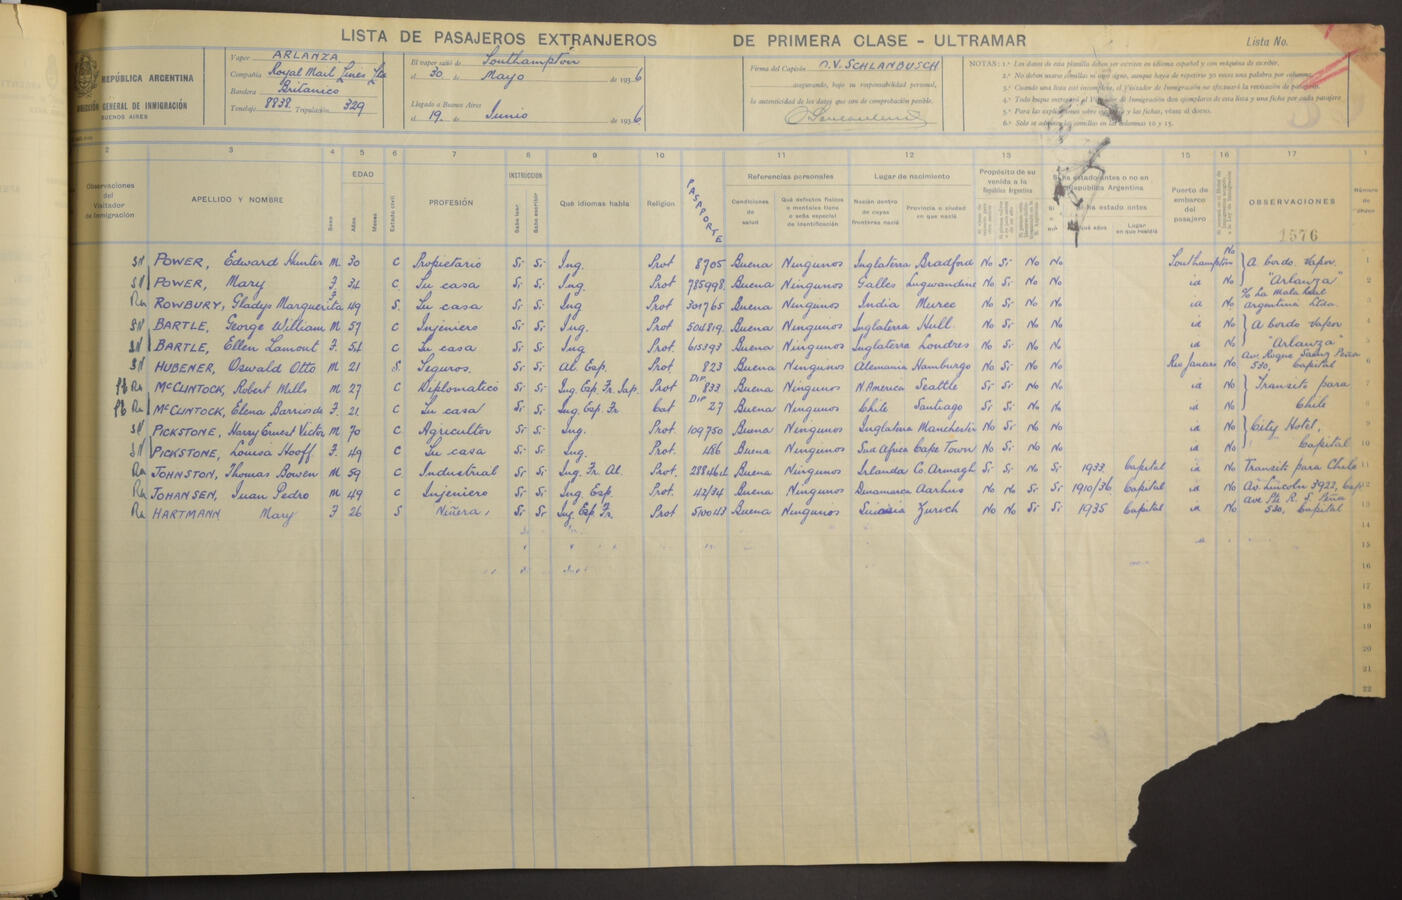 LISTA DE PASAJEROS EXTRANJEROS DE PRIMERA CLASE - ULTRAMAR Lista No.
REPÚBLICA ARGENTINA
DIRECCIÓN GENERAL DE INMIGRACIÓN
BUENOS AIRES
Vapor ARLANZA
Compañía Royal Mail Lines Lta
Bandera Britanico
Tonelaje 8838 Tripulación 329
El vapor salió de Southampton
el 30 de Mayo de 1936
Llegado a Buenos Aires
el 19 de Junio de 1936
Firma del Capitán O.V. SCHLANBUSCH
asegurando, bajo su responsabilidad personal,
la autenticidad de los datos que son de comprobación posible.
NOTAS: 1.ª Los datos de esta planilla deben ser escritos en idioma español y con máquina de escribir.
2.ª No deben usarse comillas ni otro signo, aunque haya de repetirse 30 veces una palabra por columna.
3.ª Cuando una lista esté incompleta, el Visitador de Inmigración no efectuará la recepción de pasajeros.
4.ª Todo buque entregará al Visitador de Inmigración dos ejemplares de esta lista y una ficha por cada pasajero
5.ª Para las explicaciones sobre esta lista y las fichas, véase al dorso.
6.ª Solo se admiten las comillas en las columnas 10 y 15.
2 3 4 5 6 7 8 9 10 11 12 13 15 16 17 1
Observaciones del Visitador de Inmigración
APELLIDO Y NOMBRE
Sexo
EDAD
Años
Meses
Estado civil
PROFESIÓN
INSTRUCCION
Sabe leer
Sabe escribir
Qué idiomas habla
Religion
PASAPORTE
Referencias personales
Condiciones de salud
Qué defectos físicos o mentales tiene o seña especial de identificación
Lugar de nacimiento
Nación dentro de cuyas fronteras nació
Provincia o ciudad en que nació
Propósito de su venida a la República Argentina
Si ha estado antes o no en República Argentina
Si ha estado antes
Qué años
Lugar en que residió
Puerto de embarco del pasajero
OBSERVACIONES
Número de orden
1576
SH POWER, Edward Hunter M 30 C Propietario Si Si Ing. Prot 8705 Buena Ningunos Inglaterra Bradford No Si No No Southampton No A bordo vapor 1
SH POWER, Mary F 34 C Su casa Si Si Ing. Prot 785998 Buena Ningunos Galles No Si No No id No "Arlanza" 2
Ru ROWBURY, Gladys Marguerita F 49 S. Su casa Si Si Ing Prot 301765 Buena Ningunos India Muree No Si No No id No c/o La Mala Real Argentina Ltda.
SH BARTLE, George William M 57 C Injeniero Si Si Ing. Prot 504819 Buena Ningunos Inglaterra Hull No Si No No id No A bordo vapor 4
SH BARTLE, Ellen Lamont F. 54 C Su casa Si Si Ing Prot 615393 Buena Ningunos Inglaterra Londres No Si No No id No "Arlanza" 5
SH HUBENER, Oswald Otto M 21 S Seguros. Si Si Al. Esp. Prot 823 Buena Ningunos Alemania Hamburgo No Si No No Rio Janeiro No Av. Roque Saenz Peña 530, Capital 6
Ru McCLINTOCK, Robert Mills M 27 C Diplomatico Si Si Ing. Esp. Fr. Jap. Prot DIP 833 Buena Ningunos N America Seattle Si Si No No id No Transito para 7
Ru McCLINTOCK, Elena Barrios de F. 21 C Su casa Si Si Ing. Esp. Fr Cat DIP 27 Buena Ningunos Chile Santiago Si Si No No id No Chile 8
SH PICKSTONE, Harry Ernest Victor M 70 C Agricultor Si Si Ing. Prot 109750 Buena Ningunos Inglaterra Manchester No Si No No id No City Hotel, 9
SH PICKSTONE, Louisa Hooff F. 49 C Su casa Si Si Ing. Prot. 486 Buena Ningunos Sud Africa Cape Town No Si No No id No Capital 10
Ru JOHNSTON, Thomas Bowen M 59 C Industrial Si Si Ing. Fr. Al. Prot. 288464 Buena Ningunos Irlanda Co. Armagh Si Si No Si 1933 Capital id No Transito para Chile 11
Ru JOHANSEN, Juan Pedro M 49 C Injeniero Si Si Ing. Esp. Prot. 42/34 Buena Ningunos Dinamarca Aarhus No No Si Si 1910/36 Capital id No Av Lincoln 3922, Cap 12
Ru HARTMANN Mary F 26 S Niñera, Si Si Ing. Esp. Fr. Prot 510043 Buena Ningunos Suecia Zurich No No Si Si 1935 Capital id No ave Pte R. S. Peña 530, Capital 13
14
15
16
17
18
19
20
21
22